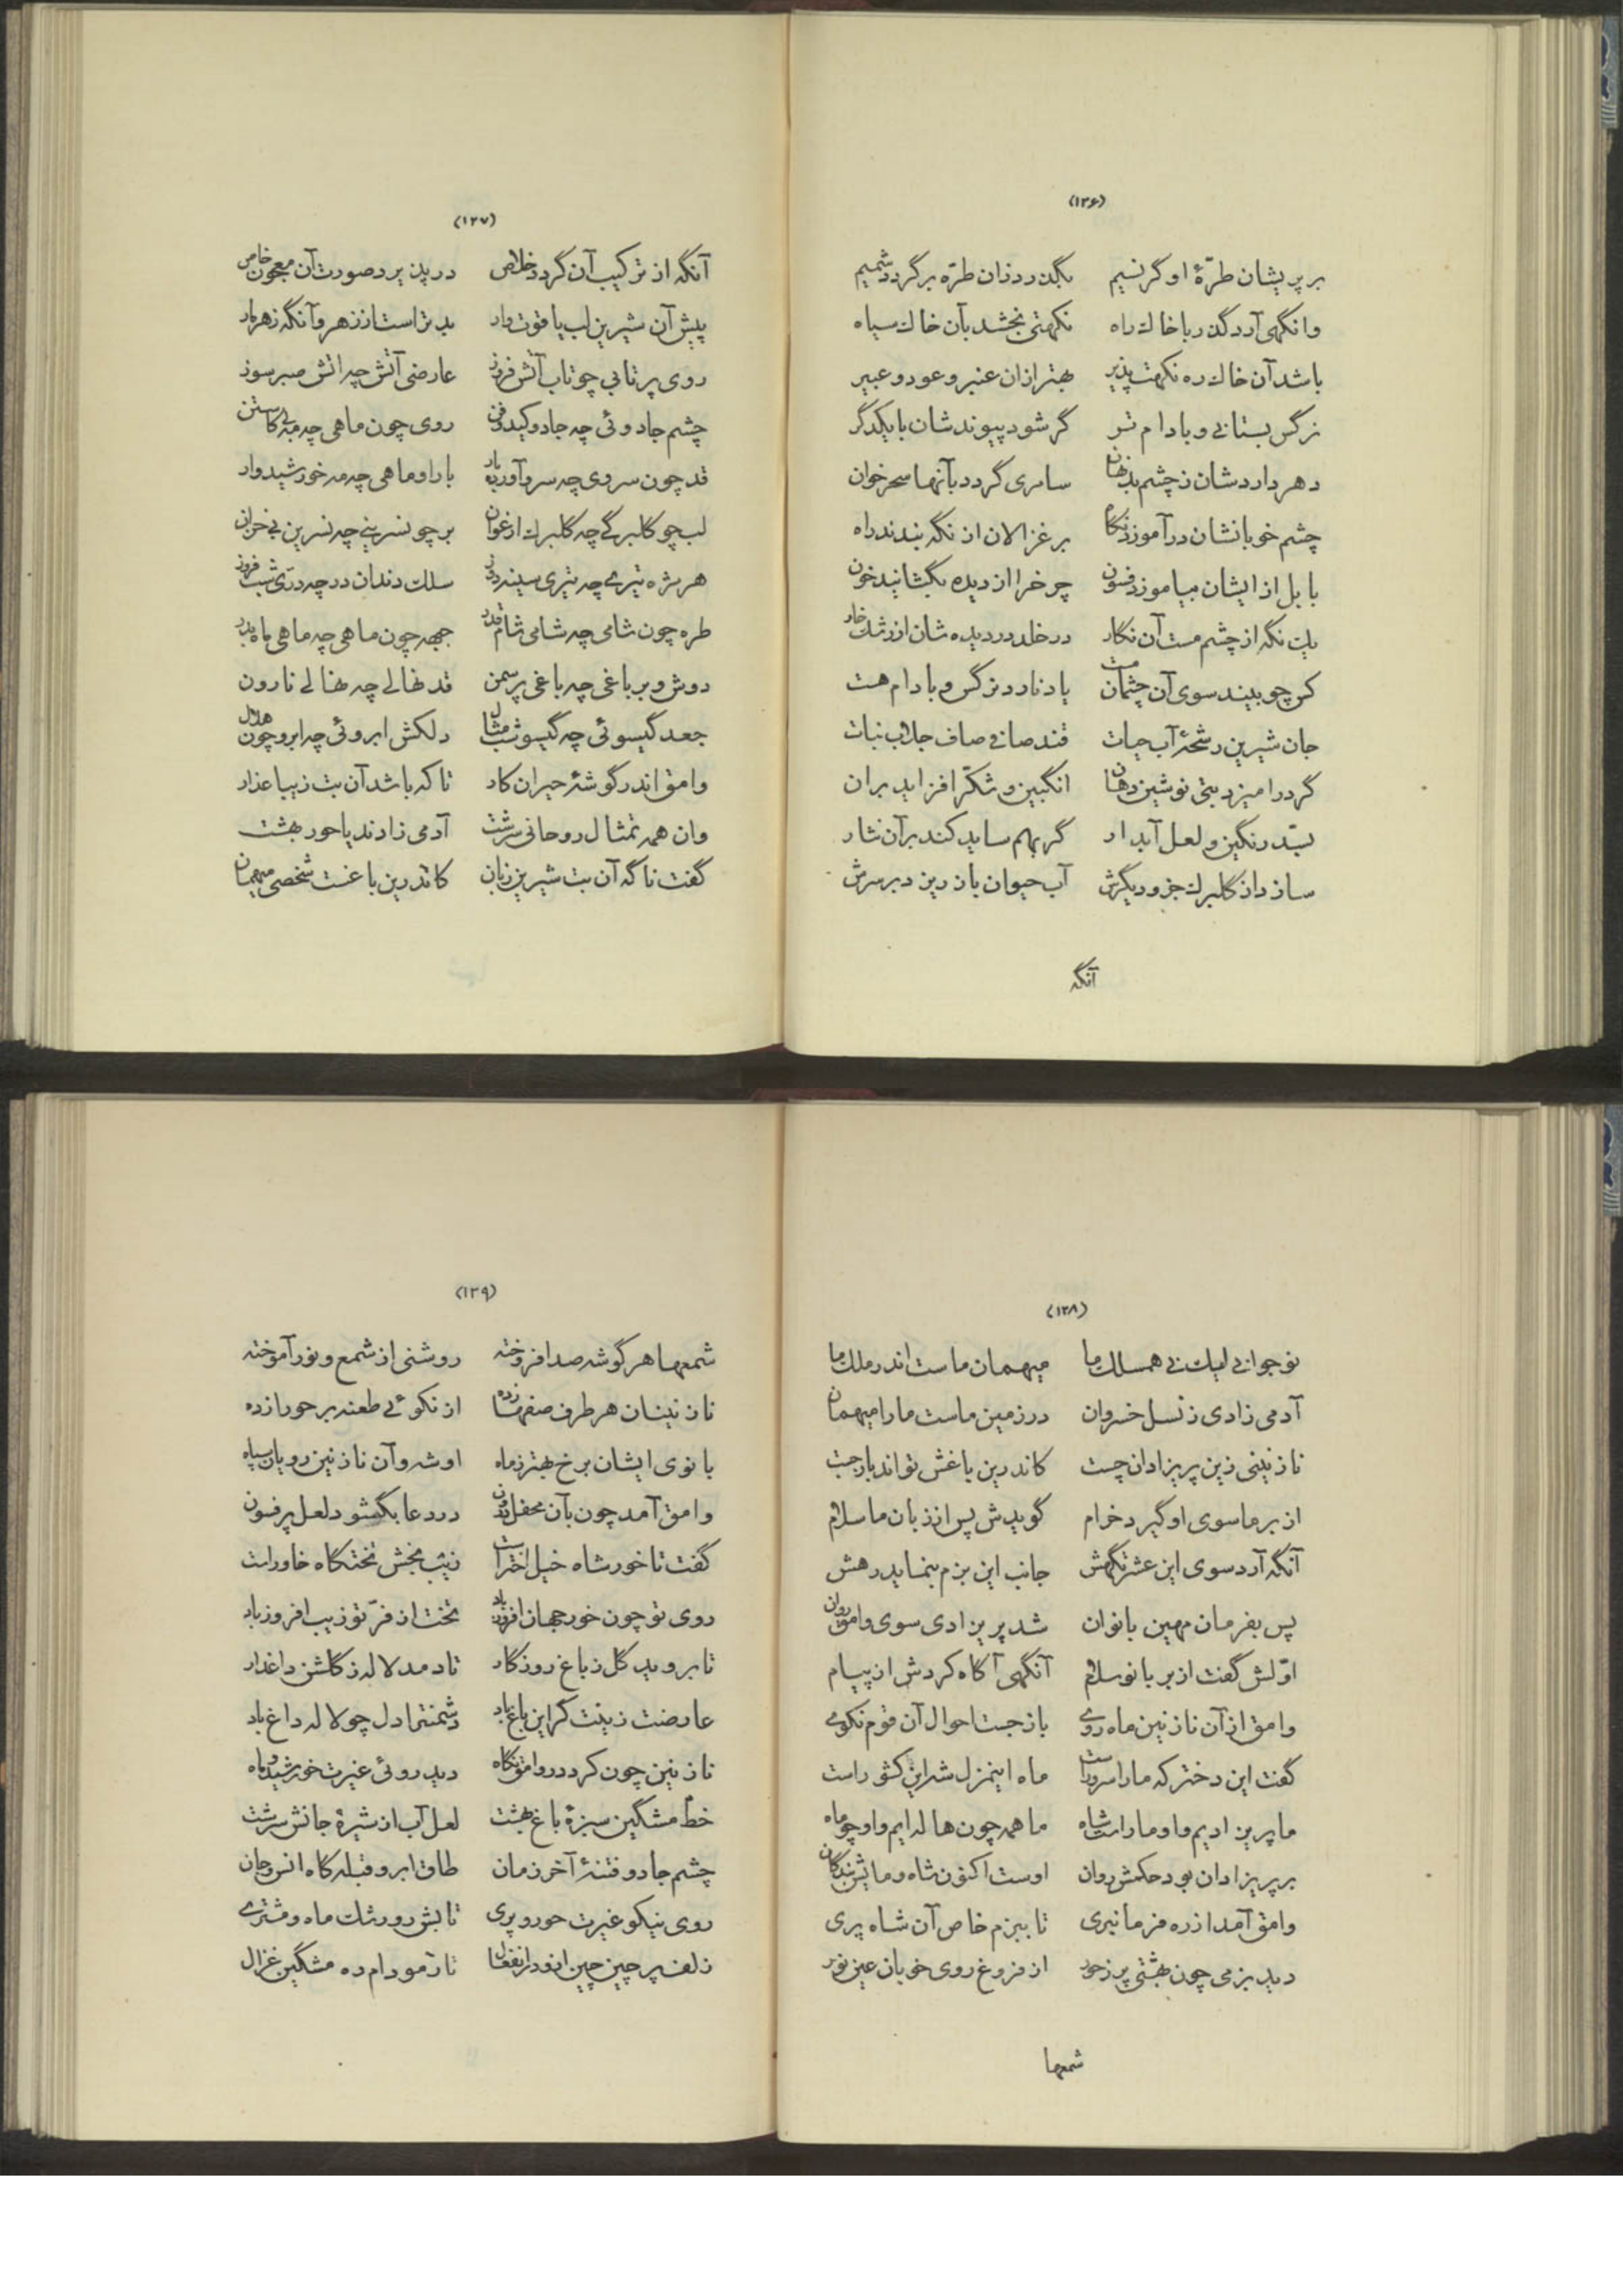 (۱۳۶)
بر پریشان طرّهٔ او گر نسیم بگذرد زان طرّه برگردد شمیم
وانگهی آرد گذر با خاک راه نکهتی بخشد بآن خاک سیاه
باشد آن خاک ره نکهت پذیر بهتر از ان عنبر و عود و عبیر
نرگس بستانی و بادام تر گر شود پیوندشان با یکدگر
دهر داردشان ز چشم بد نهان سامری گردد بآنها سحرخوان
چشم خوبانشان درآموزد نگاه بر غزالان از نگه بندند راه
بابل از ایشان بیاموزد فسون چرخ را از دیده بگشانید خون
یک نگه از چشم مست آن نگار در خلد در دیده شان از رشک خار
کس چو بیند سوی آن چشمان مست یاد نارد نرگس و بادام هست
جان شیرین رشحهٔ آب حیات قند صافی صاف جلاب نبات
گر درامیزد بتی نوشین دهان انگبین و شکّر افزاید بران
بسّد رنگین و لعل آبدار گر بهم ساید کند بر آن نثار
سازد از گلبرک جزو دیگرش آب حیوان بازریزد بر سرش
آنگه
(۱۳۷)
آنگه از ترکیب آن گردد خلاص در پذیرد صورت آن معجون خاص
پیش آن شیرین لب یاقوت وار بدتر است از زهر و آنگه زهر مار
روی پر تابی چو تاب آتش فروز عارضی آتش چه اتش صبر سوز
چشم جادوئی چه جادو کید و فن روی چون ماهی چه مه بی کاستن
قد چون سروی چه سرو آورده بار بار او ماهی چه مه خورشیدوار
لب چو گلبرگی چه گلبرک ارغوان بر چو نسرینی چه نسرین بی خزان
هر مژه تیری چه تیری سینه دوز سلک دندان در چه درّی شب فروز
طره چون شامی چه شامی شام قدر جبهه چون ماهی چه ماهی ماه بدر
دوش و بر باغی چه باغی پر سمن قد نهالی چه نهالی نارون
جعد گیسوئی چه گیسو شب مثال دلکش ابروئی چه ابرو چون هلال
وامق اندر گوشهٔ حیران کار تا که باشد آن بت زیبا عذار
وان همه تمثال روحانی سرشت آدمی زادند یا حور بهشت
گفت ناگه آن بت شیرین زبان کاندرین باغست شخصی میهمان
(۱۳۸)
نوجوانی لیک نی همسلک ما میهمان ماست اندر ملک ما
آدمی زادی ز نسل خسروان در زمین ماست ما را میهمان
نازنینی زین پریزادان چست کاندرین باغش تواند بازجست
از بر ما سوی او گیرد خرام گویدش پس از زبان ما سلام
آنگه آرد سوی این عشرتگهش جانب این بزم بنماید رهش
پس بفرمان مهین بانوان شد پریزادی سوی وامق روان
اوّلش گفت از بر بانو سلام آنگهی آگاه کردش از پیام
وامق از آن نازنین ماه روی بازجست احوال آن قوم نکوی
گفت این دختر که ما را سرورست ماه اینمنزل شه این کشور است
ما پریزادیم و او ما راست شاه ما همه چون هاله ایم و او چو ماه
بر پریزادان بود حکمش روان اوست اکنون شاه و مائیش بندگان
وامق آمد از ره فرمانبری تا ببزم خاص آن شاه پری
دید بزمی چون بهشتی پر ز حور از فروغ روی خوبان عین نور
شمعها
(۱۳۹)
شمعها هر گوشه صد افروخته روشنی از شمع و نور آموخته
نازنینان هر طرف صفها زده از نکوئی طعنه بر حورا زده
بانوی ایشان برخ بهتر ز ماه او شه و آن نازنین رویان سپاه
وامق آمد چون بآن محفل درون در دعا بگشود لعل پر فسون
گفت تا خور شاه خیل اختر است زیب بخش تختگاه خاور است
روی تو چون خور جهان افروز باد تخت از فرّ تو زیب افروز باد
تا بروید گل ز باغ روزگار تا دمد لاله ز گلشن داغدار
عارضت زینت گر این باغ باد دشمنترا دل چو لاله داغ باد
نازنین چون کرد در وامق نگاه دید روئی غیرت خورشید و ماه
خط مشگین سبزهٔ باغ بهشت لعل آب از شیرهٔ جانش سرشت
چشم جادو فتنهٔ آخر زمان طاق ابرو قبله گاه انس و جان
روی نیکو غیرت حور و پری تابش رو رشک ماه و مشتری
زلف پر چین چین ازو در انفعال تار مو دام ده مشگین غزال